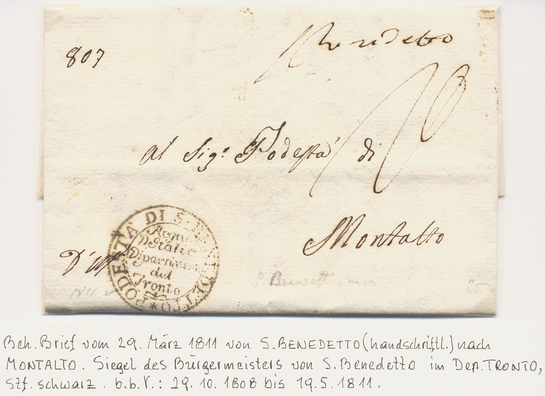 807
Benedetto
Al Sig.r Podestà di
Montalto
PODESTÀ DI S. BENEDETTO
Regno
D'Italia
Dipartimento
del
Tronto
D'Uff
1811
Bch. Brief vom 29. März 1811 von S. BENEDETTO (handschriftl.) nach
MONTALTO. Siegel des Bürgermeisters von S. Benedetto im Dep. TRONTO,
Stf. schwarz. b.b.V.: 29.10.1808 bis 19.5.1811.